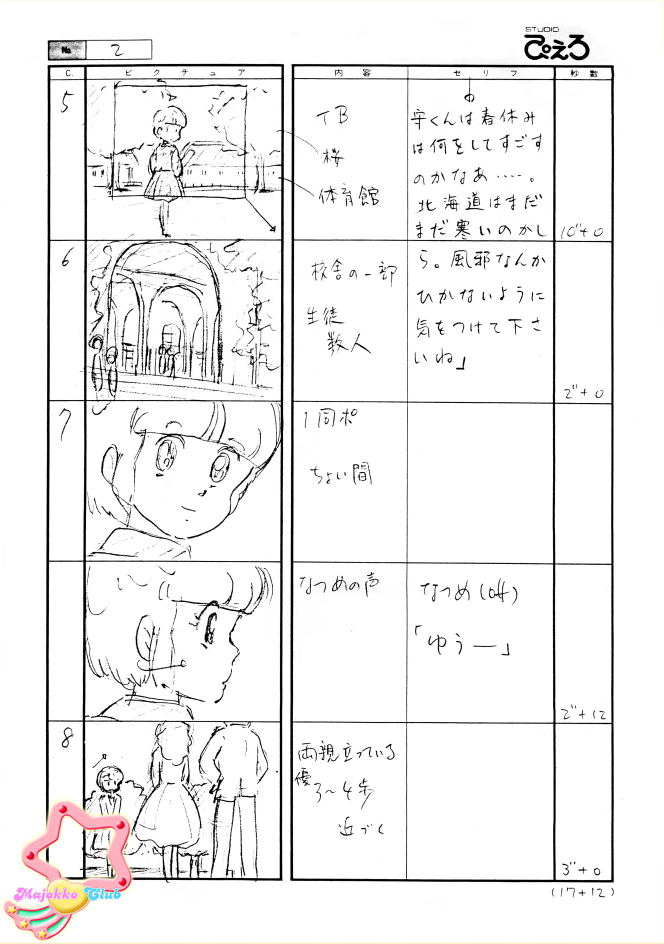 No. 2
STUDIO
ぴえろ
C. ピクチュア 内容 セリフ 秒数
5
TB
桜
体育館
宇くんは春休み
は何をしてすごす
のかなあ……。
北海道はまだ
まだ寒いのかし
10"+0
6
校舎の一部
生徒
数人
ら。風邪なんか
ひかないように
気をつけて下さ
いね」
2"+0
7
1同ポ
ちょい間
なつめの声
なつめ(off)
「ゆうー」
2"+12
8
両親立っている
優3〜4歩
近づく
3"+0
(17+12)
Majokko Club